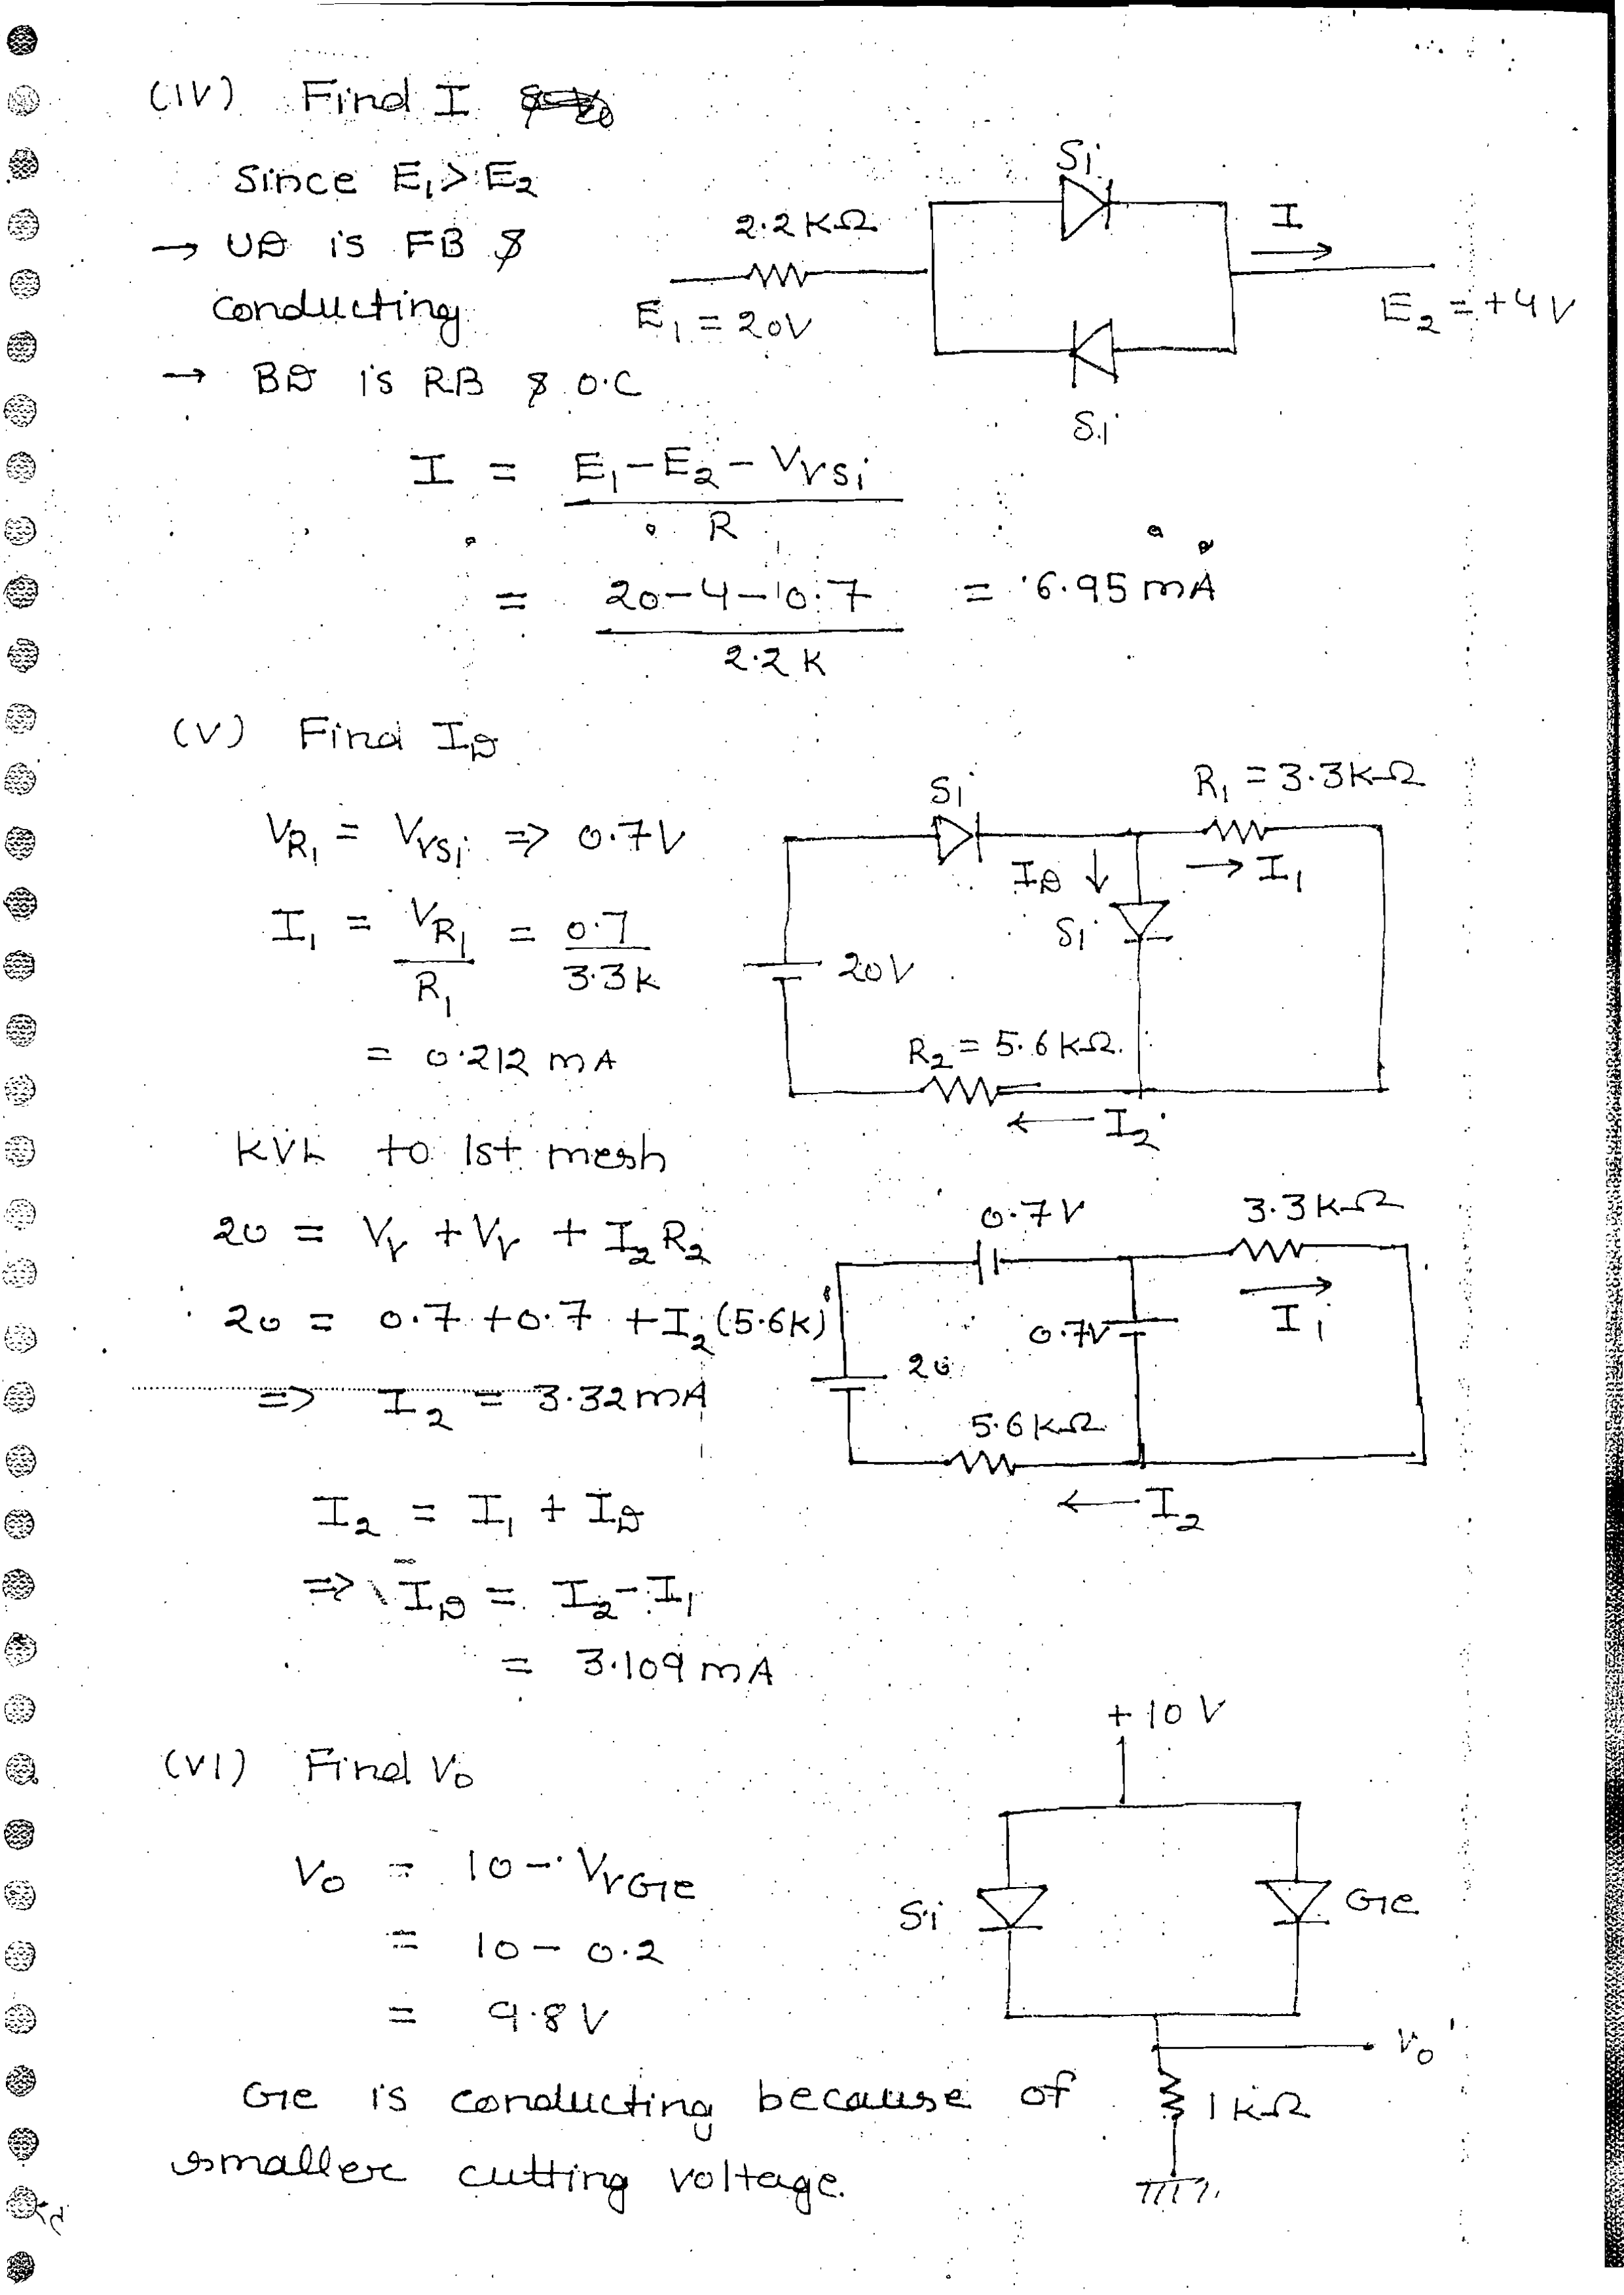 (iv) Find I
Since E₁ > E₂
→ UD is FB &
conducting
→ BD is RB & O.C
Si
2.2KΩ
I
E₁ = 20V
E₂ = +4V
Si
I = E₁ - E₂ - VγSi / R
= 20-4-0.7 / 2.2K = 6.95 mA
(v) Find I_D
V_R₁ = VγSi => 0.7V
I₁ = V_R₁ / R₁ = 0.7 / 3.3K
= 0.212 mA
Si
R₁ = 3.3KΩ
I_D ↓
→ I₁
Si
20V
R₂ = 5.6KΩ
← I₂
KVL to 1st mesh
20 = Vγ + Vγ + I₂R₂
20 = 0.7 + 0.7 + I₂(5.6K)
=> I₂ = 3.32mA
0.7V
3.3KΩ
I₁
0.7V
20
5.6KΩ
← I₂
I₂ = I₁ + I_D
=> I_D = I₂ - I₁
= 3.109 mA
(vi) Find V₀
+10V
V₀ = 10 - VγGe
= 10 - 0.2
= 9.8V
Si
Ge
V₀
1KΩ
Ge is conducting because of
smaller cutting voltage.